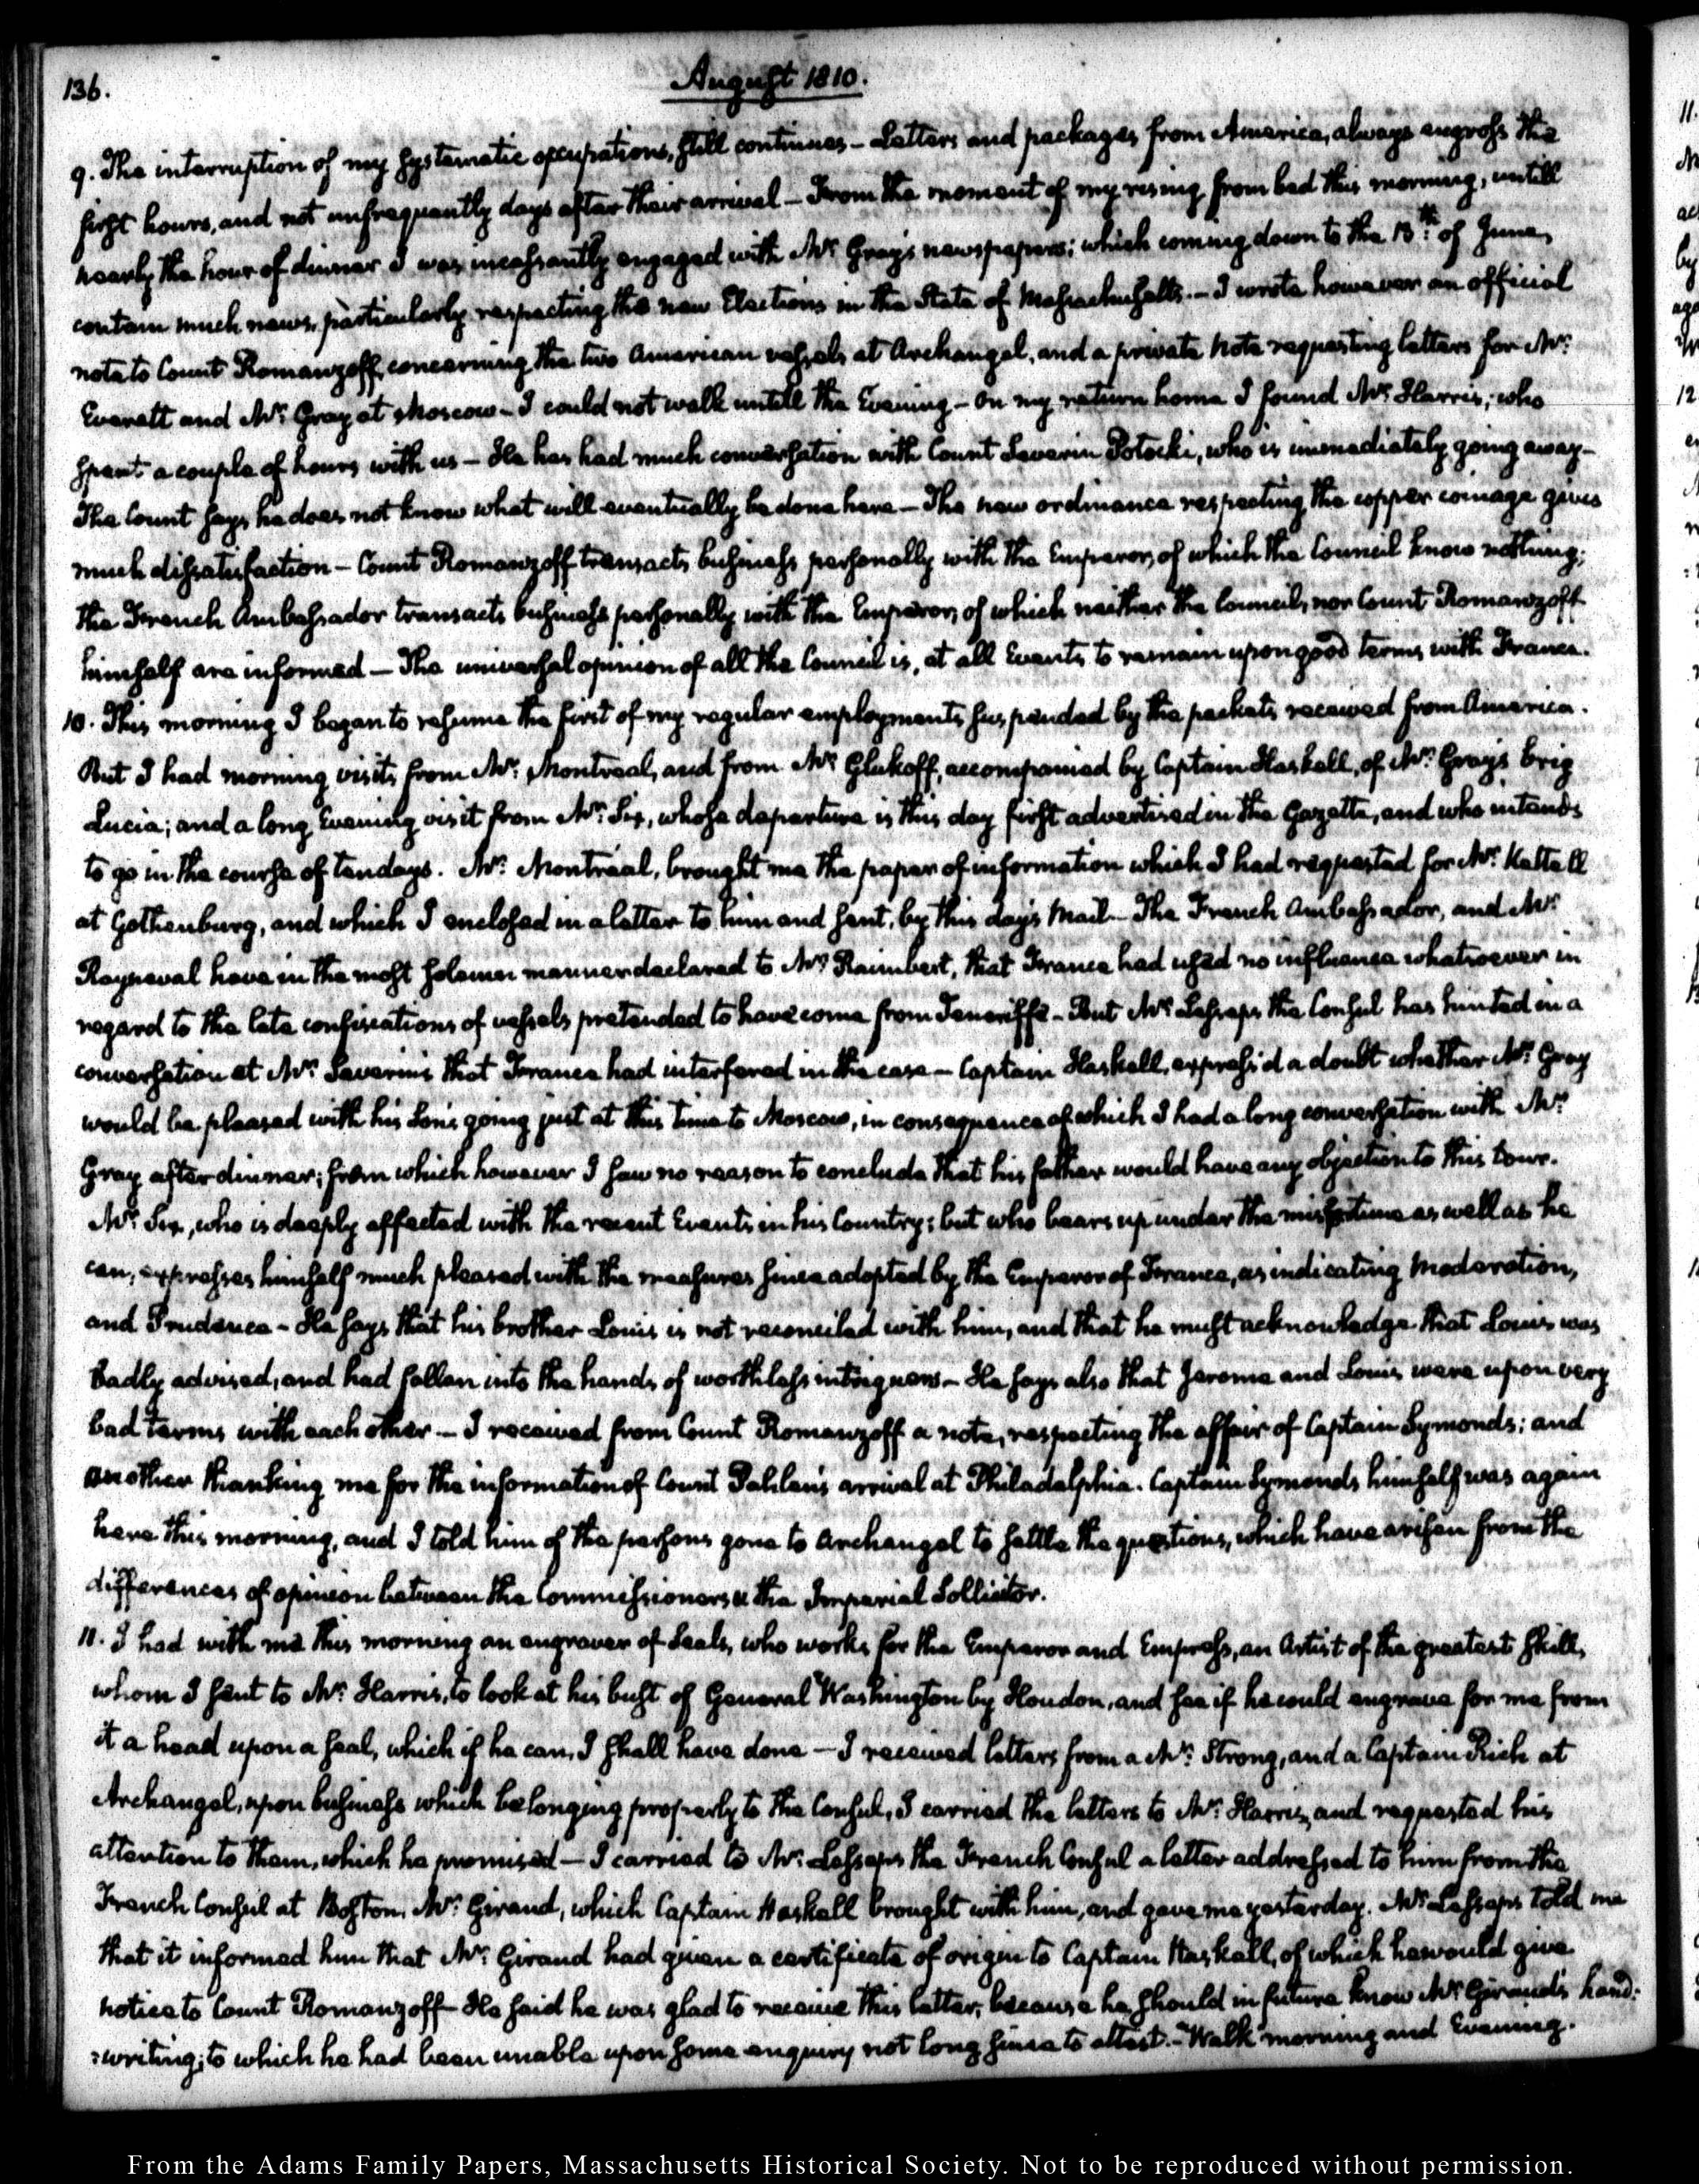 136.
August 1810.
9. The interruption of my systematic occupations, still continues – Letters and packages from America, always engross the
first hours, and not unfrequently days after their arrival – From the moment of my rising from bed this morning, untill
nearly the hour of dinner I was incessantly engaged with Mr: Gray's newspapers; which coming down to the 13th: of June,
contain much news, particularly respecting the new Elections in the State of Massachusetts. – I wrote however an official
note to Count Romanzoff, concerning the two American vessels at Archangel, and a private note requesting letters for Mr:
Everett and Mr: Gray at Moscow – I could not walk untill the Evening – On my return home I found Mr: Harris; who
spent a couple of hours with us – He has had much conversation with Count Severin Potocki, who is immediately going away –
The Count says he does not know what will eventually be done here – The new ordinance respecting the copper coinage gives
much dissatisfaction – Count Romanzoff transacts business personally with the Emperor, of which the Council know nothing;
the French Ambassador transacts business personally with the Emperor, of which neither the Council, nor Count Romanzoff
himself are informed – The universal opinion of all the Council is, at all Events to remain upon good terms with France.
10. This morning I began to resume the first of my regular employments suspended by the packets received from America.
But I had morning visits from Mr: Montreal, and from Mr: Glukoff, accompanied by Captain Haskell, of Mr: Gray's brig
Lucia; and a long Evening visit from Mr: Six, whose departure is this day first advertised in the Gazette, and who intends
to go in the course of ten days. Mr: Montreal, brought me the paper of information which I had requested for Mr: Kettell
at Gothenburg, and which I enclosed in a letter to him and sent, by this day's Mail – The French Ambassador, and Mr:
Rayneval have in the most solemn manner declared to Mr: Raimbert, that France had used no influence whatsoever in
regard to the late confiscations of vessels pretended to have come from Teneriffe – But Mr: Lesseps the Consul has hinted in a
conversation at Mr: Severin's that France had interfered in the case – Captain Haskell, express'd a doubt whether Mr: Gray
would be pleased with his Son's going just at this time to Moscow, in consequence of which I had a long conversation with Mr:
Gray after dinner; from which however I saw no reason to conclude that his father would have any objection to this tour.
Mr: Six, who is deeply affected with the recent Events in his Country; but who bears up under the misfortune as well as he
can, expresses himself much pleased with the measures since adopted by the Emperor of France, as indicating Moderation,
and Prudence – He says that his brother Louis is not reconciled with him, and that he must acknowledge that Louis was
badly advised, and had fallen into the hands of worthless intriguers – He says also that Jerome and Louis were upon very
bad terms with each other – I received from Count Romanzoff a note, respecting the affair of Captain Symonds; and
another thanking me for the information of Count Pahlen's arrival at Philadelphia. Captain Symonds himself was again
here this morning, and I told him of the persons gone to Archangel to settle the questions, which have arisen from the
differences of opinion between the Commissioners & the Imperial Sollicitor.
11. I had with me this morning an engraver of Seals, who works for the Emperor and Empress, an Artist of the greatest skill,
whom I sent to Mr: Harris, to look at his bust of General Washington by Houdon, and see if he could engrave for me from
it a head upon a seal, which if he can, I shall have done – I received letters from a Mr: Strong, and a Captain Rich at
Archangel, upon business which belonging properly to the Consul, I carried the letters to Mr: Harris, and requested his
attention to them, which he promised – I carried to Mr: Lesseps the French Consul a letter addressed to him from the
French Consul at Boston, Mr: Giraud, which Captain Haskell brought with him, and gave me yesterday. Mr: Lesseps told me
that it informed him that Mr: Giraud had given a certificate of origin to Captain Haskell, of which he would give
notice to Count Romanzoff – He said he was glad to receive this letter; because he should in future know Mr: Giraud's hand:
:writing; to which he had been unable upon some enquiry not long since to attest. – Walk morning and Evening.
From the Adams Family Papers, Massachusetts Historical Society. Not to be reproduced without permission.